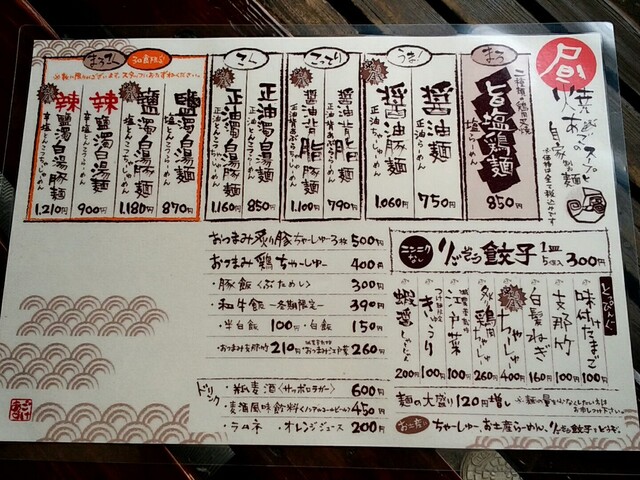 昼
焼きあご
スープの
自家製麺
まろ
旨塩鶏麺
塩らーめん
850円
うまい
醤油麺
正油らーめん
750円
醤油豚麺
正油ちゃーしゅーめん
1,060円
こってり
醤油背脂麺
790円
醤油背脂豚麺
1,100円
こく
正油濁白湯麺
850円
正油濁白湯豚麺
1,160円
まろこく
30食限定
鹽濁白湯麺
塩とんこつらーめん
870円
鹽濁白湯豚麺
塩とんこつちゃーしゅーめん
1,180円
辣鹽濁白湯麺
辛塩とんこつらーめん
900円
辣鹽濁白湯豚麺
辛塩とんこつちゃーしゅーめん
1,210円
おつまみ炙り豚ちゃーしゅー3枚 500円
おつまみ鶏ちゃーしゅー 400円
・豚飯〈ぶためし〉 300円
・和牛飯〜冬期限定〜 390円
・半白飯 100円・白飯 150円
・おつまみ支那竹 210円 ・おつまみ江戸菜 260円
ドリンク
・瓶麦酒〈サッポロラガー〉 600円
・麦酒風味飲料〈ノンアルコールビール〉 450円
・ラムネ ・オレンジジュース 200円
ニンニクなし
餃子 1皿 5個入 300円
とっぴんぐ
味付たまご 100円
支那竹 100円
白髪ねぎ 160円
ちゃーしゅ 400円
炙り鶏ちゃーしゅ 260円
江戸菜 100円
きゅうり 100円
蝦醤 200円
麺の大盛り 120円増し
お土産に ちゃーしゅー、お土産らーめん、餃子もどうぞ。